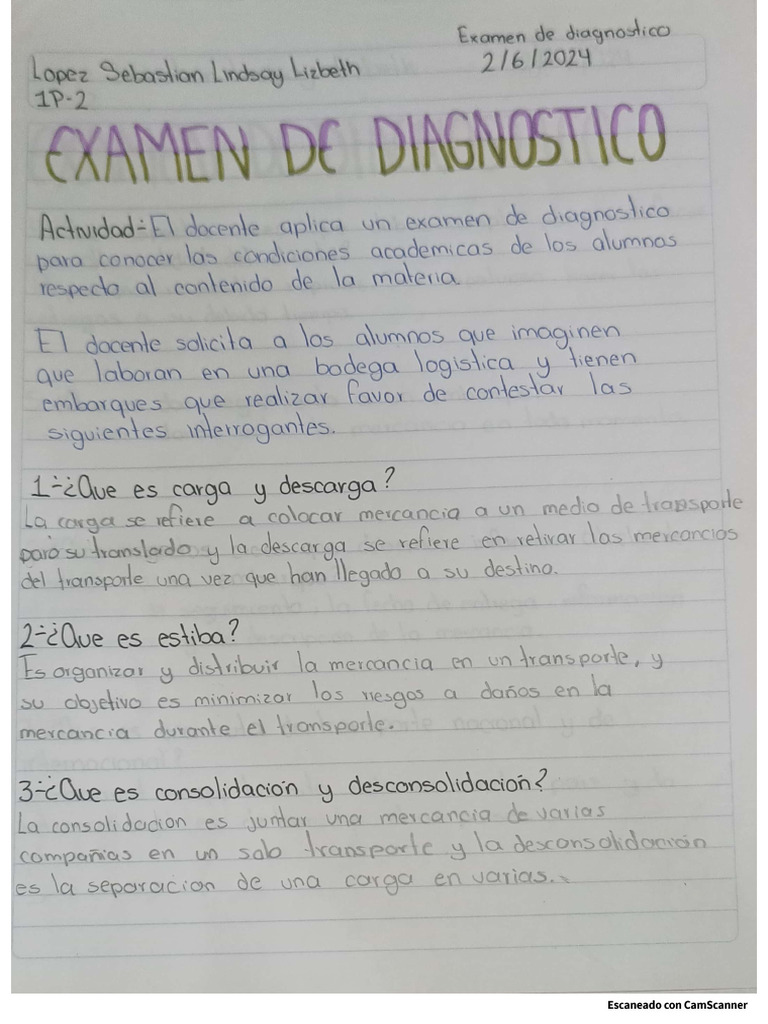 Examen de diagnostico
Lopez Sebastian Lindsay Lizbeth
2/6/2024
1P-2
EXAMEN DE DIAGNOSTICO
Actividad÷El docente aplica un examen de diagnostico
para conocer las condiciones academicas de los alumnos
respecto al contenido de la materia.
El docente solicita a los alumnos que imaginen
que laboran en una bodega logistica y tienen
embarques que realizar favor de contestar las
siguientes interrogantes.
1÷¿Que es carga y descarga?
La carga se refiere a colocar mercancia a un medio de transporte
para su translado y la descarga se refiere en retirar las mercancias
del transporte una vez que han llegado a su destino.
2÷¿Que es estiba?
Es organizar y distribuir la mercancia en un transporte, y
su objetivo es minimizar los riesgos a daños en la
mercancia durante el transporte.
3÷¿Que es consolidación y desconsolidación?
La consolidacion es juntar una mercancia de varias
compañias en un solo transporte y la desconsolidación
es la separacion de una carga en varias.
Escaneado con CamScanner